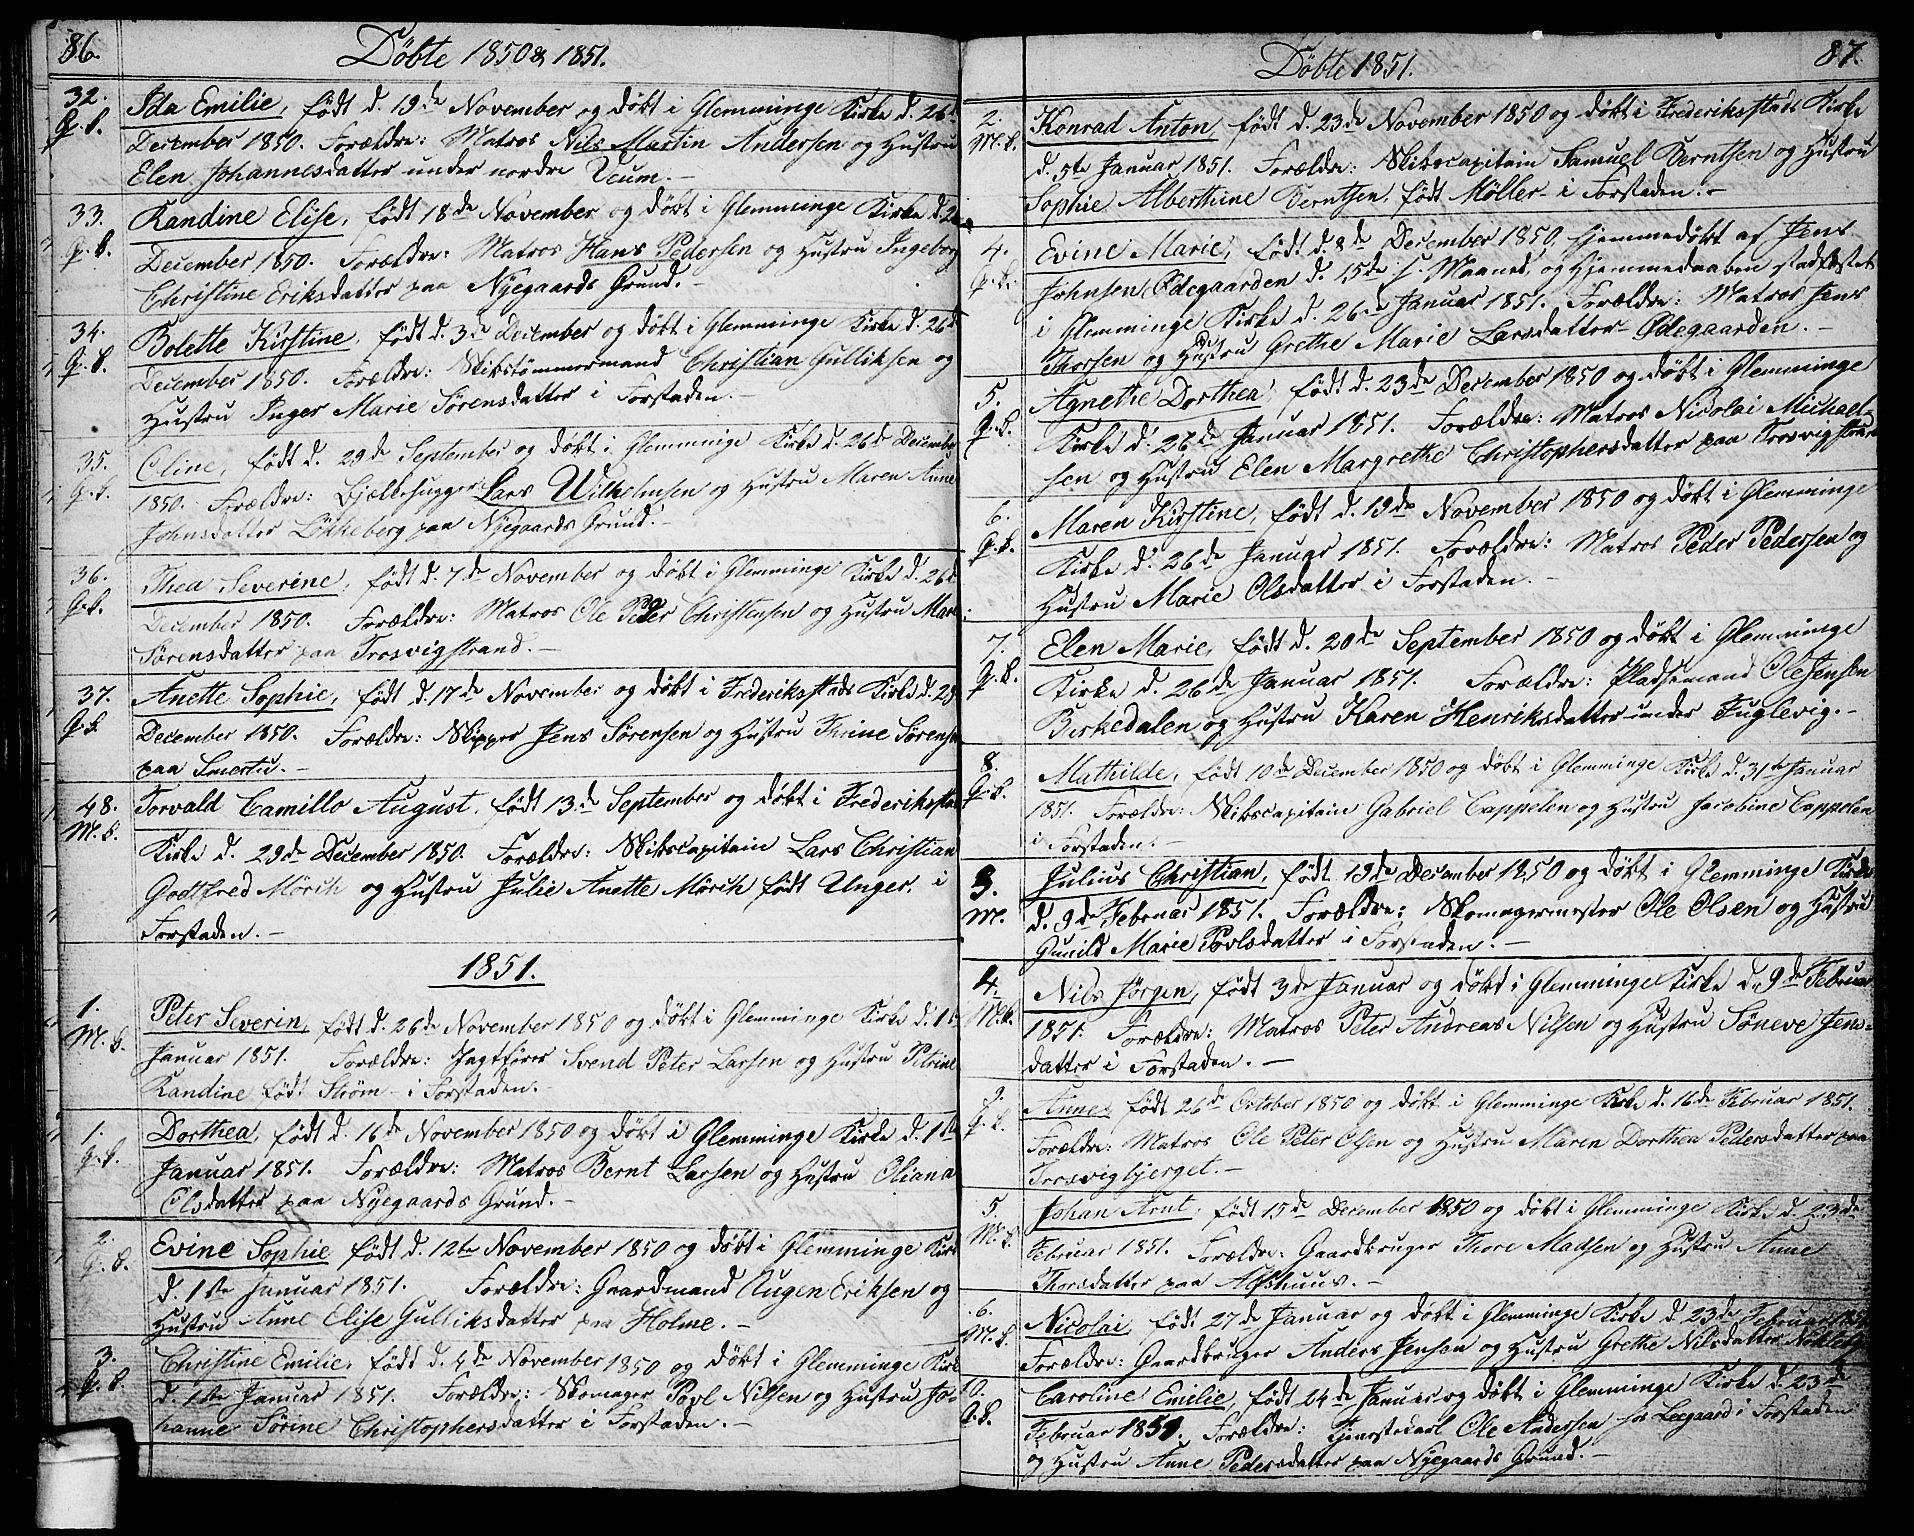 86.
Döbte 1850 & 1851.
32.
P. B.
Ida Emilie, født d. 19de November og døbt i Glemminge Kirke d. 26d
December 1850. Forældre: Matros Nils Martin Andersen og Hustru
Elen Johannesdatter under nordre Veum. –
33.
P. B.
Kandine Elise, født 18de November og døbt i Glemminge Kirke d. 26
December 1850. Forældre: Matros Hans Pedersen og Hustru Ingeborg
Christine Eriksdatter paa Nyegaards Grund. –
34.
P. B.
Bolette Kirstine, født d. 3de December og døbt i Glemminge Kirke d. 26d
December 1850. Forældre: Skibstömmermand Christian Gulliksen og
Hustru Inger Marie Sörensdatter i Forstaden. –
35.
P. B.
Oline, født d. 29de September og døbt i Glemminge Kirke d. 26de December
1850. Forældre: Bjælkehugger Lars Wilhelmsen og Hustru Maren Anne
Johnsdatter Lökkeberg paa Nyegaards Grund. –
36.
P. B.
Thea Severine, født d. 7de November og døbt i Glemminge Kirke d. 26d
December 1850. Forældre: Matros Ole Peder Christensen og Hustru Mari
Sörensdatter paa Trosvigstrand. –
37.
P. B.
Anette Sophie, født d. 17de November og døbt i Frederiksstads Kirke d. 28
December 1850. Forældre: Skipper Jens Sörensen og Hustru Trine Sörensen
paa Smertu. –
48.
M. B.
Torvald Camillo August, født 13de September og døbt i Frederiksstads
Kirke d. 29de December 1850. Forældre: Skibscapitain Lars Christian
Godtfred Mörch og Hustru Julie Anette Mörch født Unger, i
Forstaden. –
1851.
1.
M. B.
Peter Severin, født d. 26de November 1850 og døbt i Glemminge Kirke d. 1ste
Januar 1851. Forældre: Jagtfører Svend Peter Larsen og Hustru Petrine
Kandine født Strøm i Forstaden. –
1.
P. B.
Dorthea, født d. 16de November 1850 og døbt i Glemminge Kirke d. 1ste
Januar 1851. Forældre: Matros Bernt Larsen og Hustru Oliana
Olsdatter paa Nyegaards Grund. –
2.
P. B.
Evine Sophie født d. 12te November 1850 og døbt i Glemminge Kirke
d. 1ste Januar 1851. Forældre: Gaardmand Augen Eriksen og
Hustru Anne Elise Gulliksdatter paa Holme. –
3.
P. B.
Christine Emilie, født d. 4de November 1850 og døbt i Glemminge Kirke
d. 1ste Januar 1851. Forældre: Skomager Povl Nilsen og Hustru Jo-
hanne Sörine Christophersdatter i Forstaden. –
87.
Döbte 1851.
2.
M. B.
Konrad Anton, født d. 23de November 1850 og døbt i Frederiksstads Kirke
d. 5te Januar 1851. Forældre: Skibscapitain Samuel Berntsen og Hustru
Sophie Alberthine Berntsen, født Möller i Forstaden. –
4.
P. B.
Evine Marie, født d. 8de December 1850, hjemmedøbt af Jens
Johnsen Ødegaarden d. 15de s. Maaned, og Hjemmedaaben stadfæstet
i Glemminge Kirke d. 26de Januar 1851. Forældre: Matros Jens
Thorsen og Hustru Grethe Marie Larsdatter Ødegaarden. –
5.
P. B.
Agnethe Dorthea, født d. 23de December 1850 og døbt i Glemminge
Kirke d. 26de Januar 1851. Forældre: Matros Nicolai Michael-
sen og Hustru Elen Margrethe Christophersdatter paa Trosvigstrand
6.
P. B.
Maren Kirstine, født d. 19de November 1850 og døbt i Glemminge
Kirke d. 26de Januar 1851. Forældre: Matros Peder Pedersen og
Hustru Marie Olsdatter i Forstaden. –
7.
P. B.
Elen Marie, født d. 20de September 1850 og døbt i Glemminge
Kirke d. 26de Januar 1851. Forældre: Pladsemand Ole Jensen
Birkedalen og Hustru Karen Henriksdatter under Fuglevig. –
8.
P. B.
Mathilde, født 10de December 1850 og døbt i Glemminge Kirke d. 31te Januar
1851. Forældre: Skibscapitain Gabriel Cappelen og Hustru Jacobine Cappelen
i Forstaden. –
3.
M.
Julius Christian, født 19de December 1850 og døbt i Glemminge Kirke
d. 9de Februar 1851. Forældre: Skomagermester Ole Olsen og Hustru
Gunild Marie Povlsdatter i Forstaden. –
4.
M. B.
Nils Jörgen, født 3de Januar og døbt i Glemminge Kirke d. 9de Februar
1851. Forældre: Matros Peter Andreas Nilsen og Hustru Söneve Jens-
datter i Forstaden. –
9.
P. B.
Anne, født 26de October 1850 og døbt i Glemminge Kirke d. 16de Februar 1851.
Forældre: Matros Ole Peter Olsen og Hustru Maren Dorthea Pedersdatter paa
Trosvigbjerget. –
5.
M. B.
Johan Arnt, født 15de December 1850 og døbt i Glemminge Kirke d. 23de
Februar 1851. Forældre: Gaardbruger Thore Madsen og Hustru Anne
Thorsdatter paa Alshuus. –
6.
M. B.
Nicolai, født 27de Januar og døbt i Glemminge Kirke d. 23de Februar 1851
Forældre: Gaardbruger Anders Jensen og Hustru Grethe Nilsdatter
10.
P. B.
Caroline Emilie, født 24de Januar og døbt i Glemminge Kirke d. 23de
Februar 1851. Forældre: Tjenestekarl Ole Andersen for Leegaard i Forstaden
og Hustru Anne Pedersdatter paa Nyegaards Grund. –